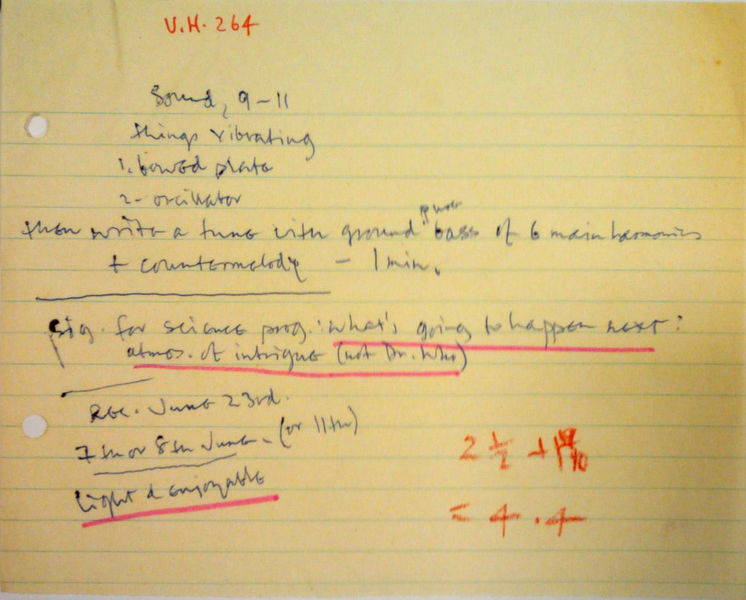 V.H. 264
Sound, 9-11
things vibrating
1. bowed plate
2- oscillator
then write a tune with ground bass of 6 main harmonics
+ countermelody - 1 min.
Sig. for science prog: what's going to happen next:
atmos. of intrigue (not Dr. Who)
Rec. June 23rd.
7th or 8th June. (or 11th)
light & enjoyable
2 1/2 + 1 9/10
= 4.4